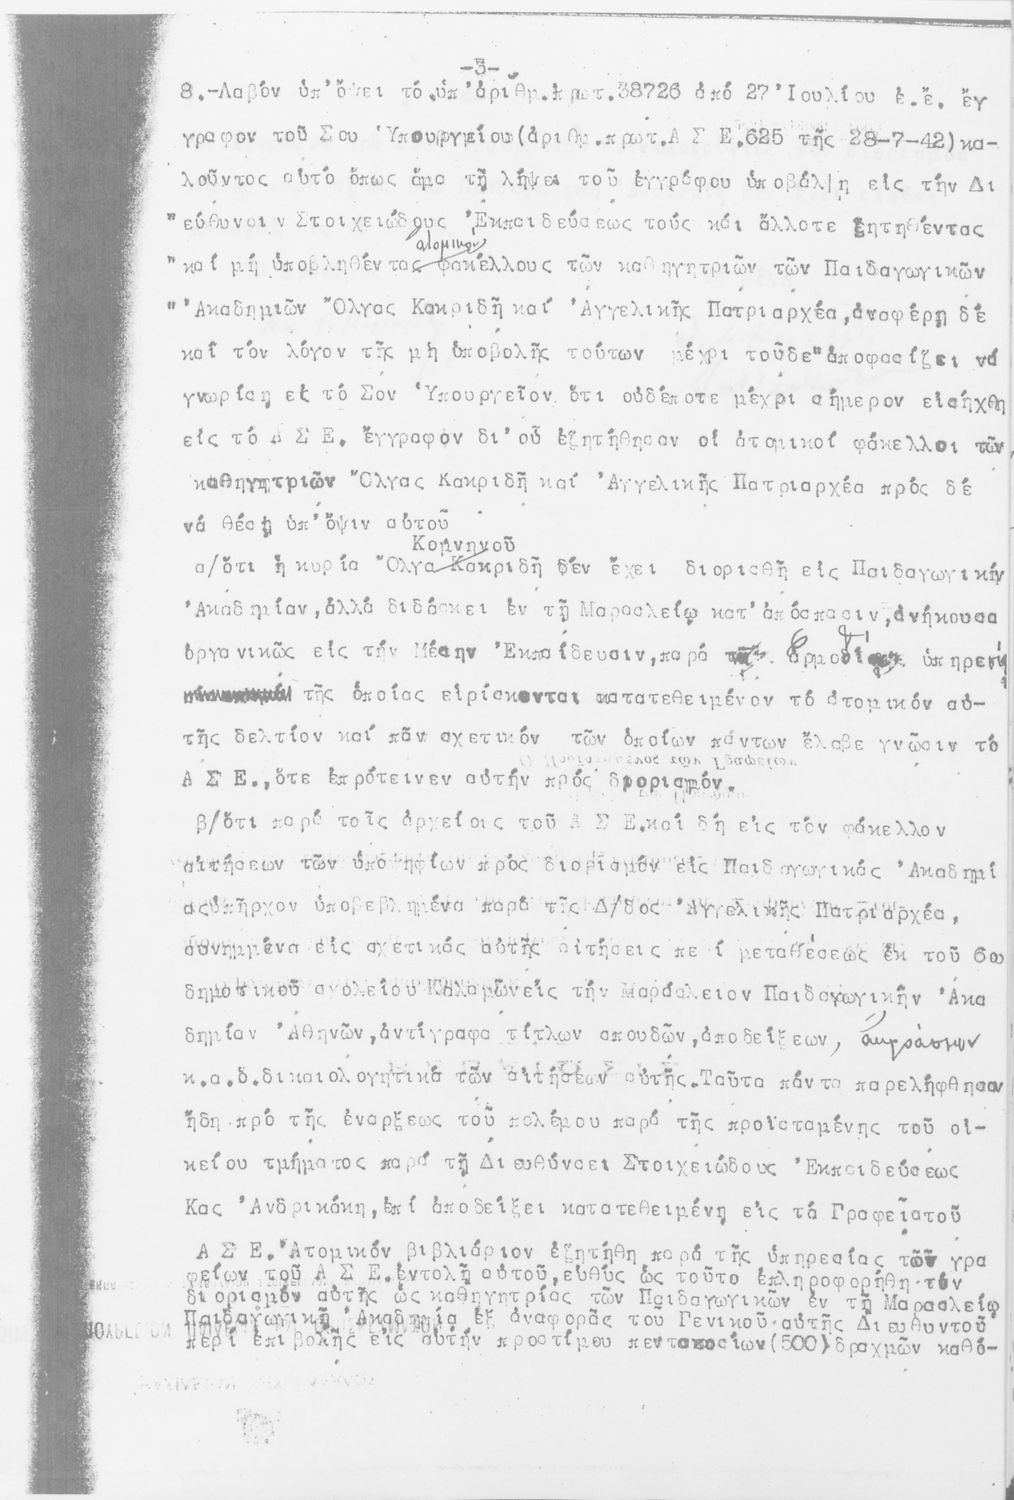 -3-
8.-Λαβόν ὑπ'ὄψει τό ὑπ'ἀριθμ.πρωτ.38726 ἀπό 27 'Ιουλίου ἑ.ἔ. ἔγ
γραφον τοῦ Σου Ὑπουργείου(ἀριθμ.πρωτ.Α Σ Ε.625 τῆς 28-7-42)κα-
λοῦντος αὐτό ὅπως ἅμα τῇ λήψει τοῦ ἐγγράφου ὑποβάλῃ εἰς τήν Δι
"εύθυνσιν Στοιχειώδους Ἐκπαιδεύσεως τούς καί ἄλλοτε ζητηθέντας
ατομικούς
"καί μή ὑποβληθέντας φακέλλους τῶν καθηγητριῶν τῶν Παιδαγωγικῶν
"Ἀκαδημιῶν Ὄλγας Κακριδῆ καί Ἀγγελικῆς Πατριαρχέα,ἀναφέρῃ δέ
καί τόν λόγον τῆς μή ὑποβολῆς τούτων μέχρι τοῦδε"ἀποφασίζει νά
γνωρίσῃ εἰς τό Σον Ὑπουργεῖον ὅτι οὐδέποτε μέχρι σήμερον εἰσήχθη
εἰς τό Α Σ Ε. ἔγγραφον δι'οὗ ἐζητήθησαν οἱ ἀτομικοί φάκελλοι τῶν
καθηγητριῶν Ὄλγας Κακριδῆ καί Ἀγγελικῆς Πατριαρχέα πρός δέ
νά θέσῃ ὑπ'ὄψιν αὐτοῦ
Κομνηνοῦ
α/ὅτι ἡ κυρία Ὄλγα Κακριδῆ δέν ἔχει διορισθῆ εἰς Παιδαγωγικήν
Ἀκαδημίαν,ἀλλά διδάσκει ἐν τῇ Μαρασλείῳ κατ'ἀπόσπασιν,ἀνήκουσα
ὀργανικῶς εἰς τήν Μέσην Ἐκπαίδευσιν,παρά ὑπηρεσίᾳ
τῆς ὁποίας εὑρίσκονται κατατεθειμένον τό ἀτομικόν αὐ-
τῆς δελτίον καί πᾶν σχετικόν τῶν ὁποίων πάντων ἔλαβε γνῶσιν τό
Α Σ Ε.,ὅτε ἐπρότεινεν αὐτήν πρός διορισμόν.
β/ὅτι παρά τοῖς ἀρχείοις τοῦ Α Σ Ε.καί δή εἰς τόν φάκελλον
αἰτήσεων τῶν ὑποψηφίων πρός διορισμόν εἰς Παιδαγωγικάς Ἀκαδημί
αςὑπῆρχον ὑποβεβλημένα παρά τῆς Δ/δος Ἀγγελικῆς Πατριαρχέα,
συνημμένα εἰς σχετικάς αὐτῆς αἰτήσεις περί μεταθέσεώς ἐκ τοῦ 6ου
δημοτικοῦ σχολείου Καλαμῶνεἰς τήν Μαράσλειον Παιδαγωγικήν Ἀκα
δημίαν Ἀθηνῶν,ἀντίγραφα τίτλων σπουδῶν,ἀποδείξεων,
κ.α.δ.δικαιολογητικά τῶν αἰτήσεων αὐτῆς.Ταῦτα πάντα παρελήφθησαν
ἤδη πρό τῆς ἐνάρξεως τοῦ πολέμου παρά τῆς προϊσταμένης τοῦ οἰ-
κείου τμήματος παρά τῇ Διευθύνσει Στοιχειώδους Ἐκπαιδεύσεως
Κας Ἀνδρικάκη,ἐπί ἀποδείξει κατατεθειμένῃ εἰς τά Γραφεῖατοῦ
Α Σ Ε.Ἀτομικόν βιβλιάριον ἐζητήθη παρά τῆς ὑπηρεσίας τῶν γρα
φείων τοῦ Α Σ Ε.ἐντολῇ αὐτοῦ,εὐθύς ὡς τοῦτο ἐπληροφορήθη τόν
διορισμόν αὐτῆς ὡς καθηγητρίας τῶν Παιδαγωγικῶν ἐν τῇ Μαρασλείῳ
Παιδαγωγικῇ Ἀκαδημίᾳ ἐξ ἀναφορᾶς του Γενικοῦ αὐτῆς Διευθυντοῦ
περί ἐπιβολῆς εἰς αὐτήν προστίμου πεντακοσίων(500)δραχμῶν καθό-